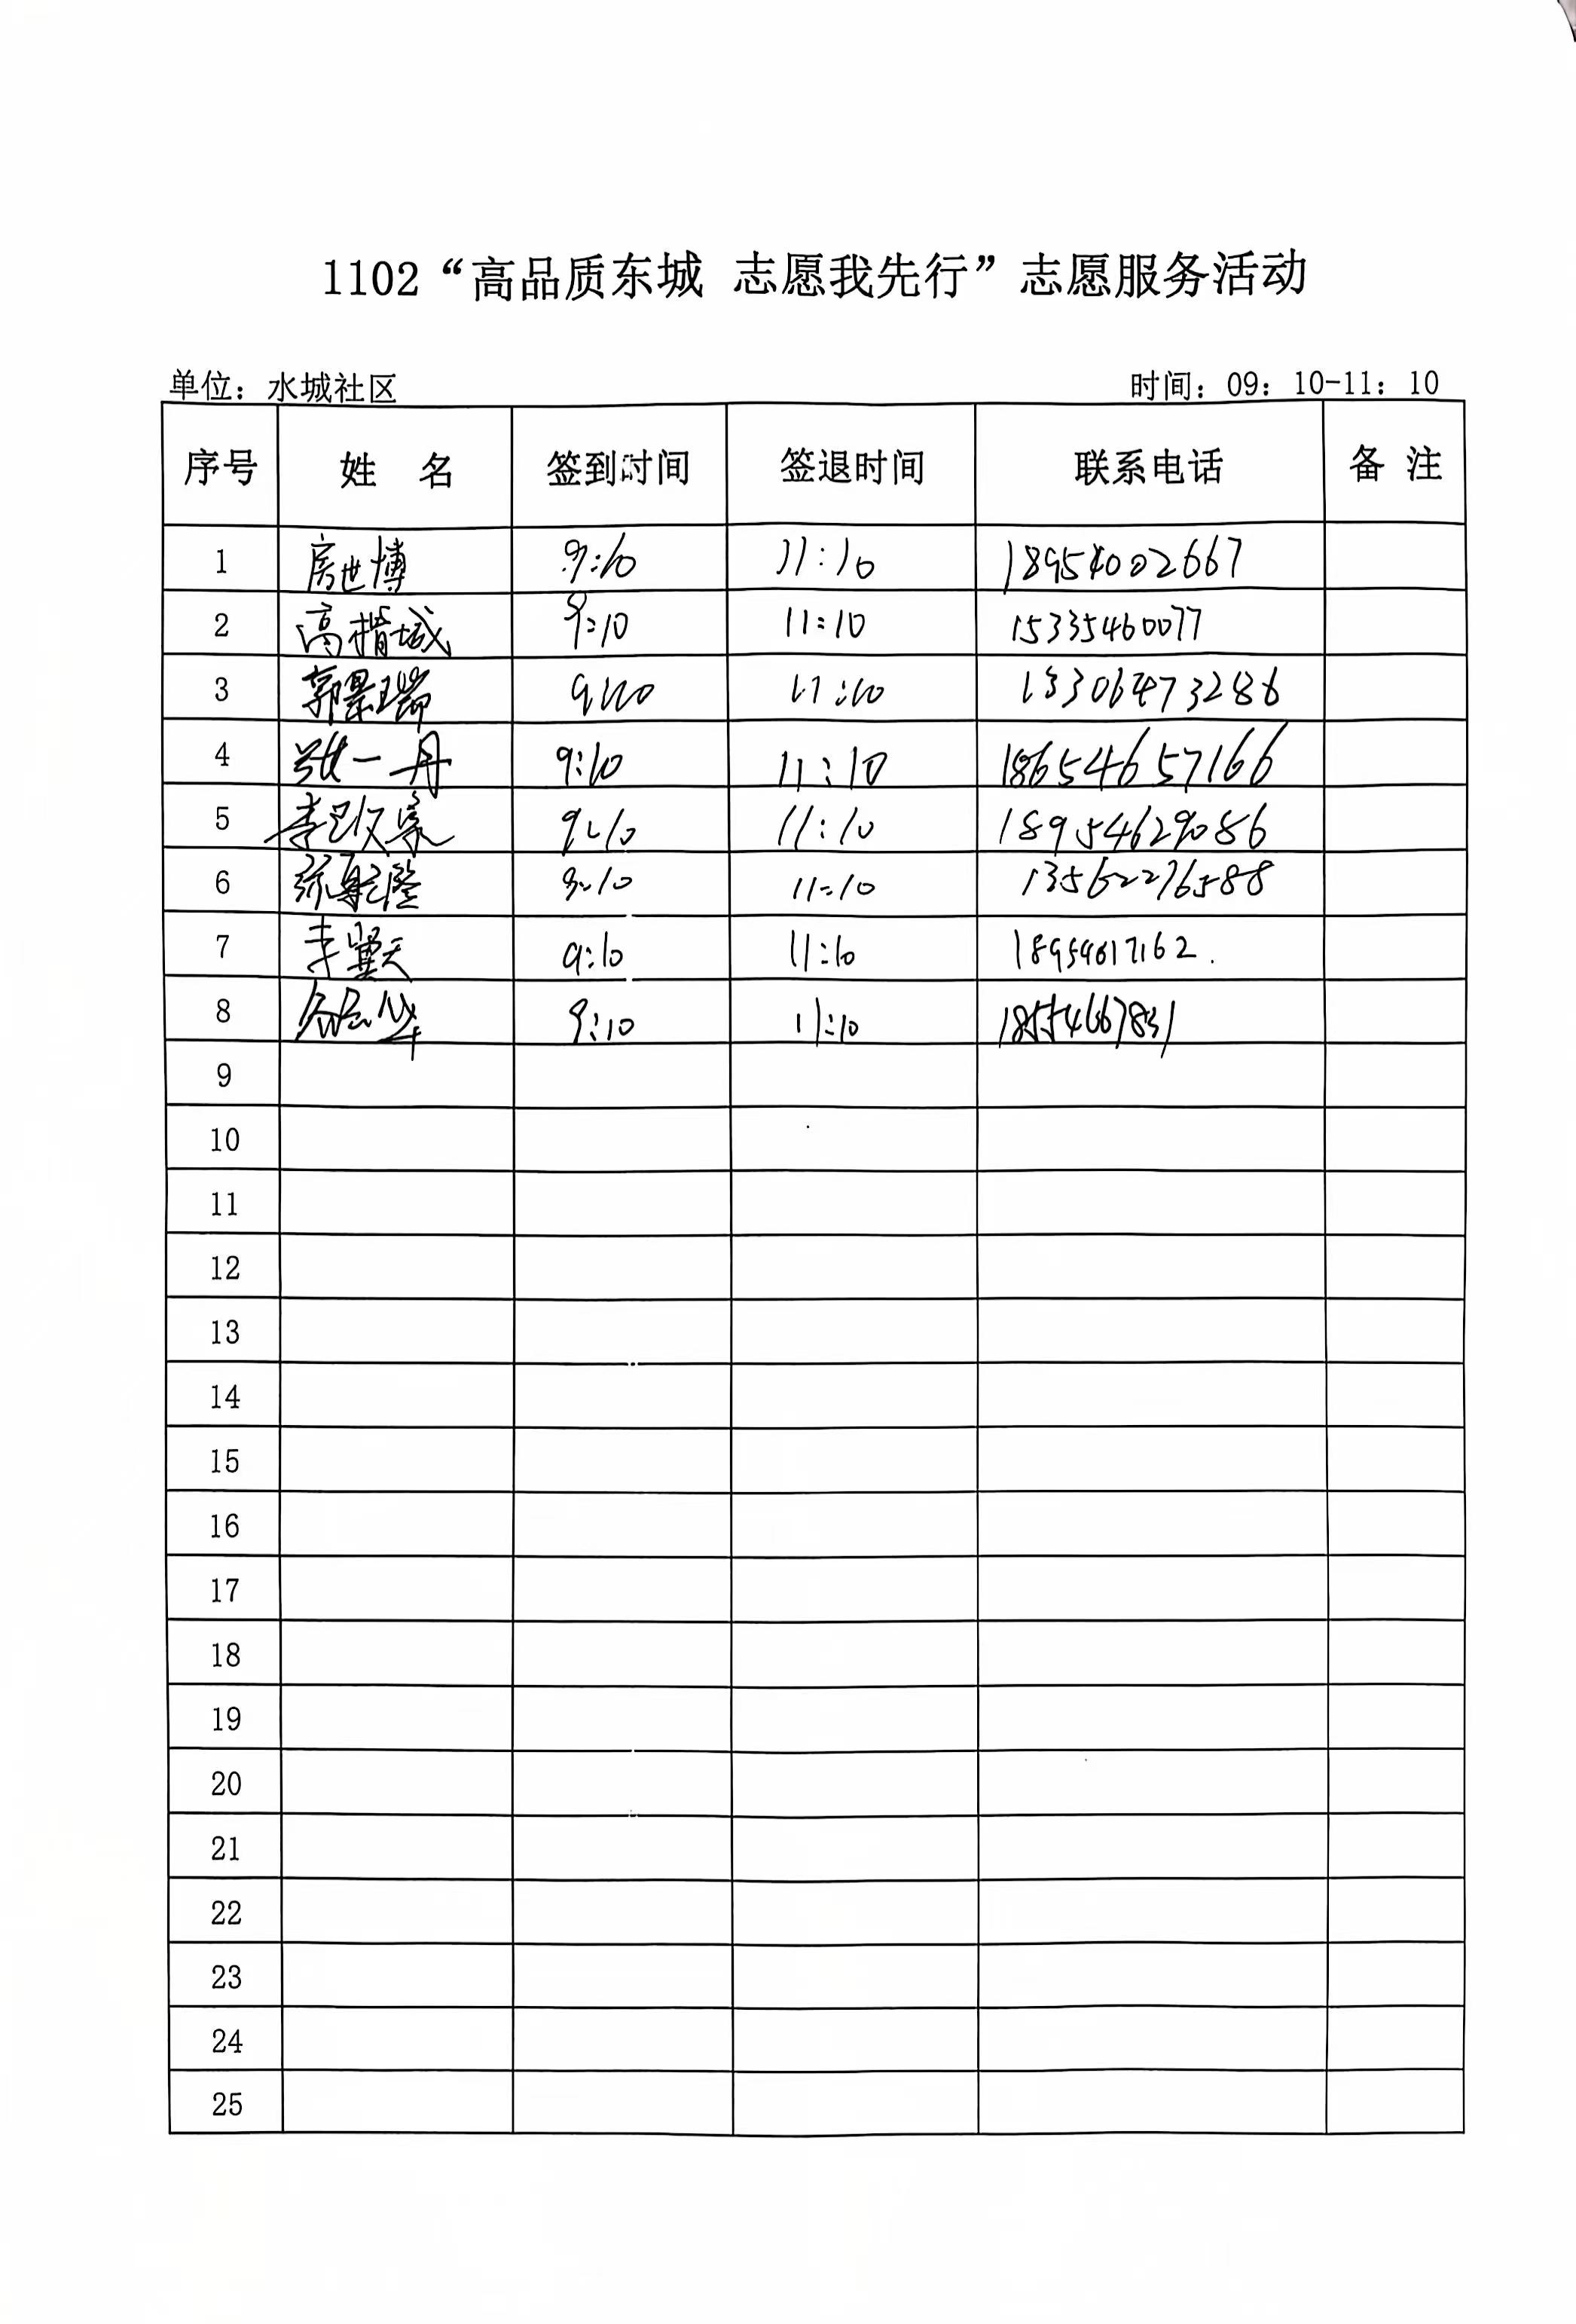 1102“高品质东城 志愿我先行”志愿服务活动
单位：水城社区 时间：09：10-11：10
序号 姓 名 签到时间 签退时间 联系电话 备 注
1 房世博 9:10 11:10 18954002667
2 高楷城 9:10 11:10 15335460077
3 郭景瑞 9:10 11:10 13306473286
4 张一丹 9:10 11:10 18654657166
5 9:10 11:10 18954629086
6 9:10 11:10 13562276588
7 李冀天 9:10 11:10 18954617162.
8 9:10 11:10
9
10
11
12
13
14
15
16
17
18
19
20
21
22
23
24
25